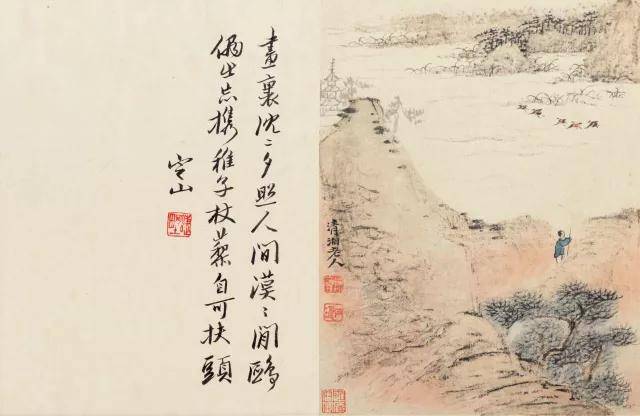 畫裏沈〻夕照人間漠〻閒鷗
偶出忘攜稚子杖藜自可扶頭
定山
清湘老人